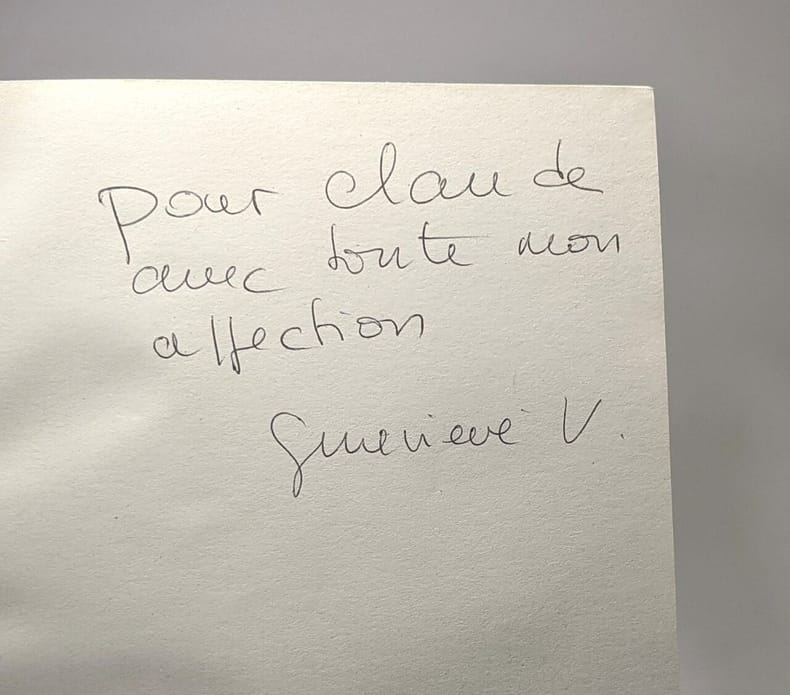 pour claude
avec toute mon
affection
Geneviève V.